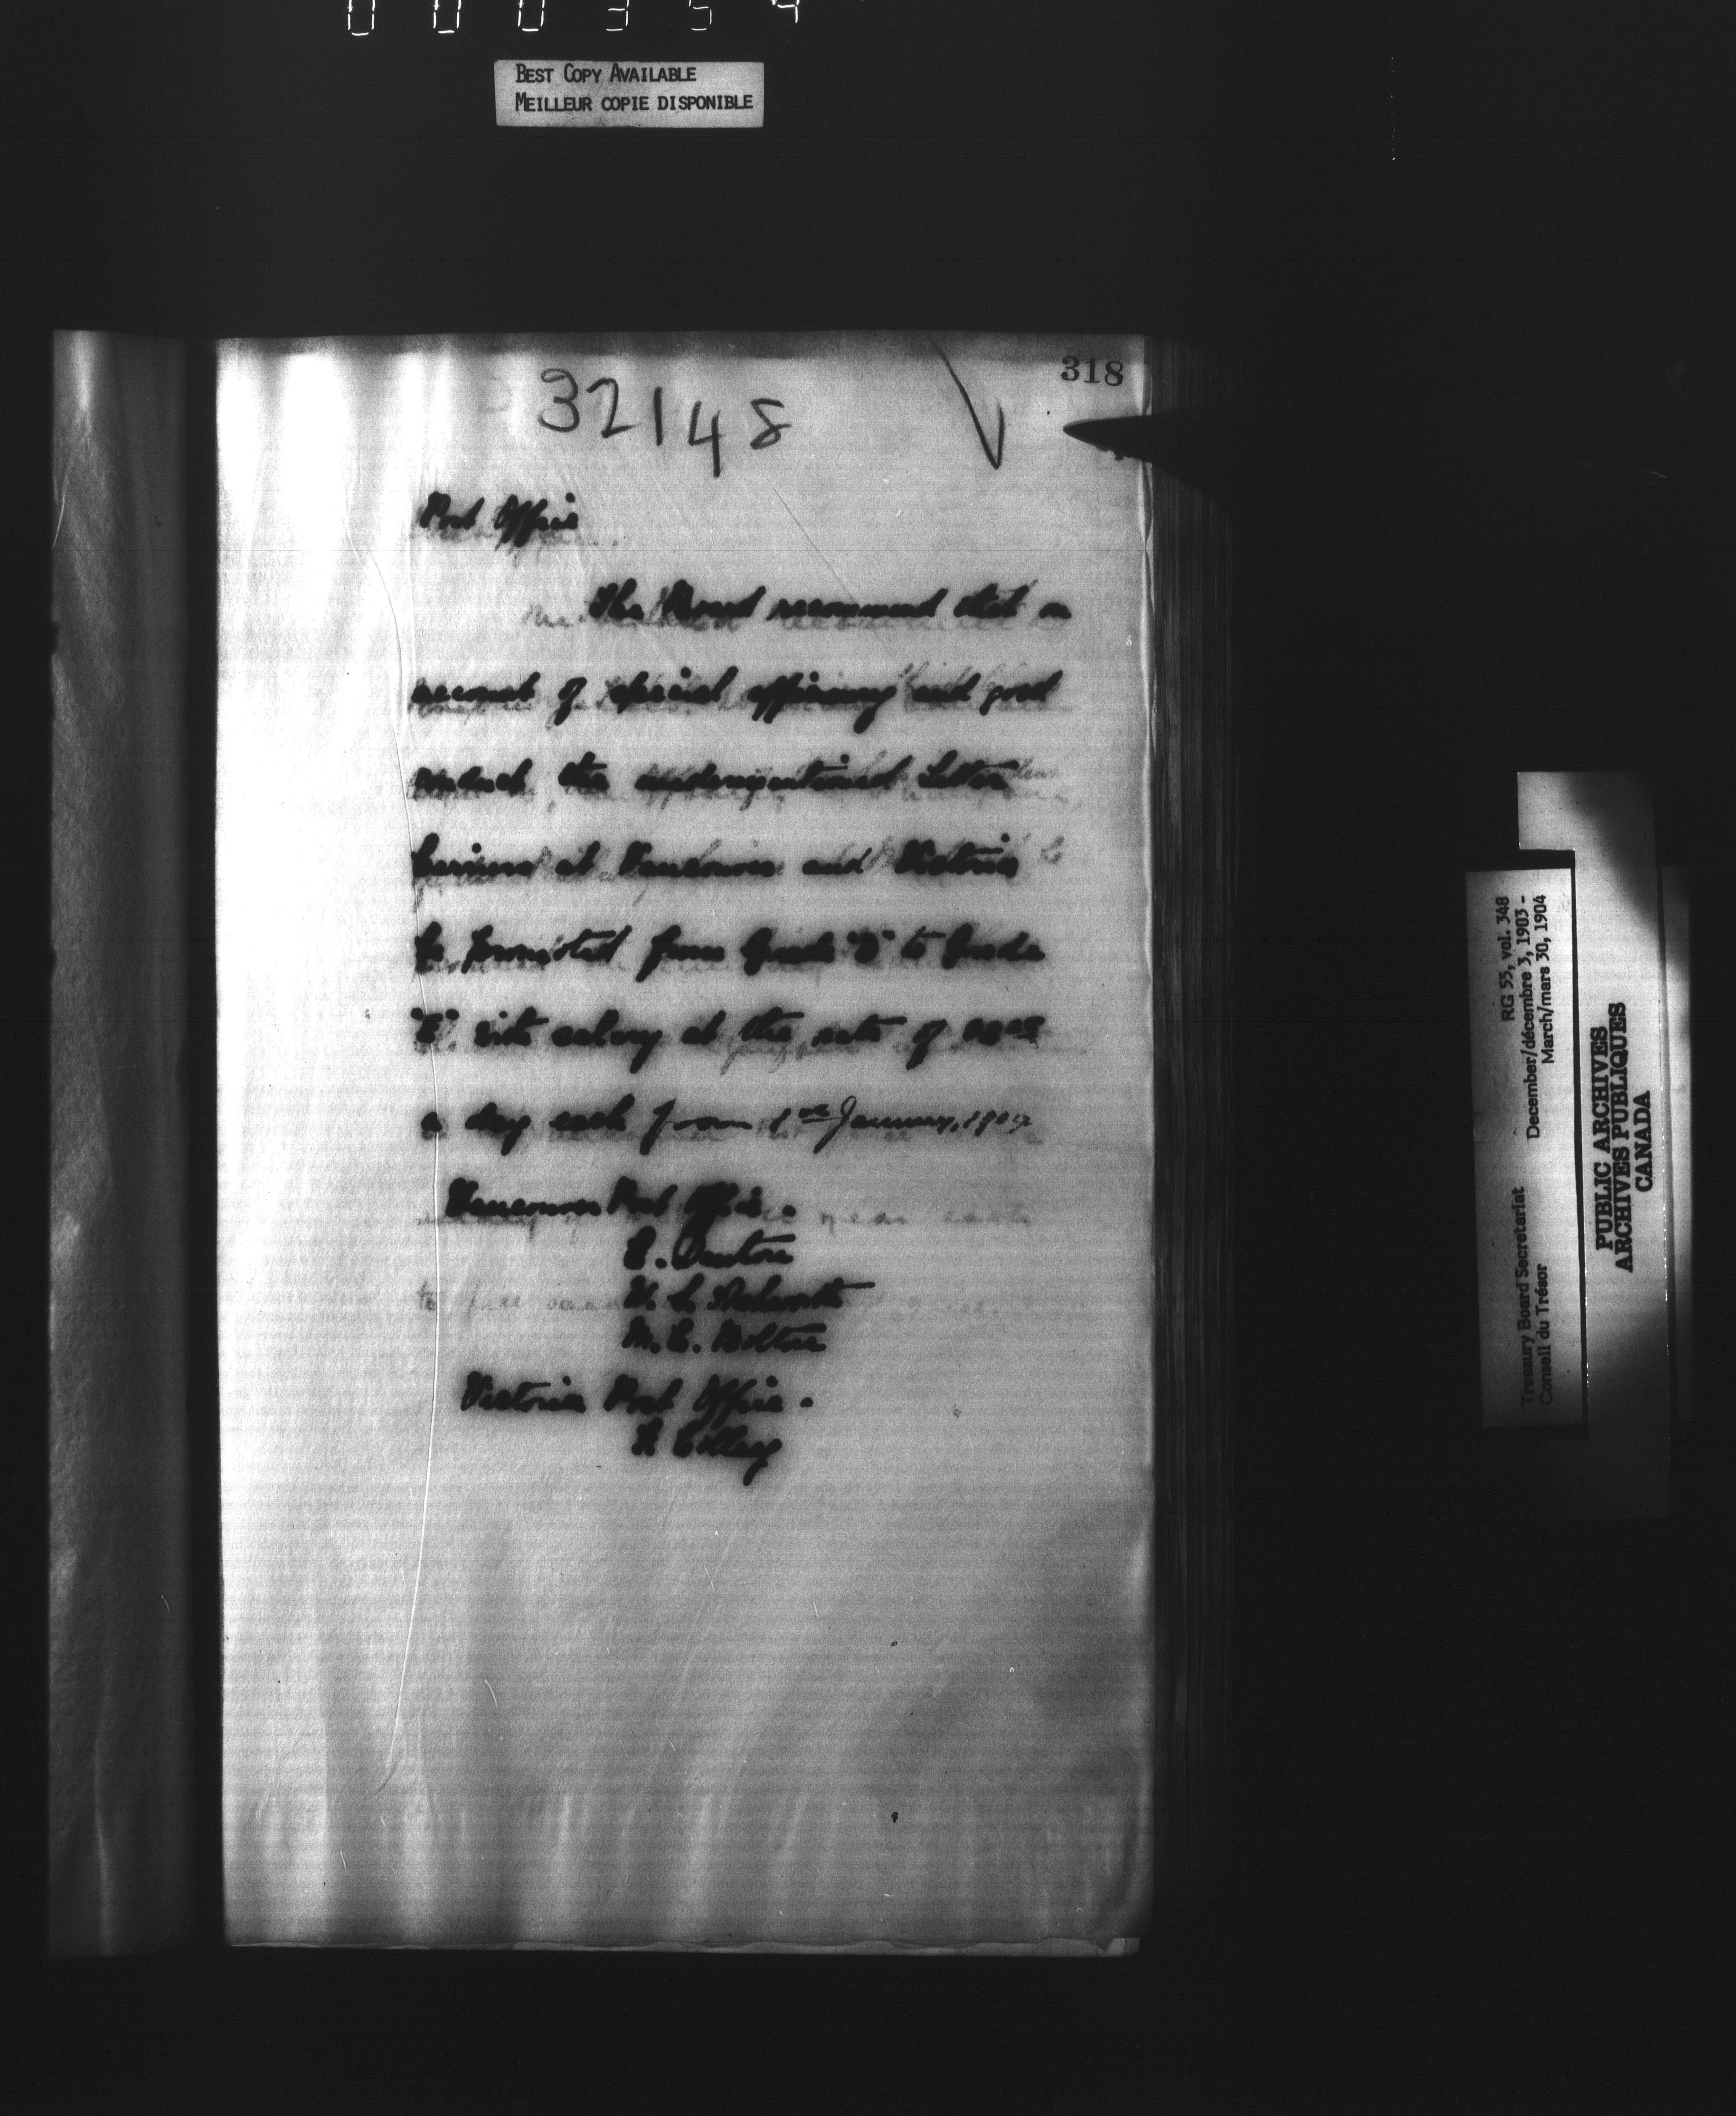 000354
BEST COPY AVAILABLE
MEILLEUR COPIE DISPONIBLE
318
32148
Post Office
The Board recommend that on
account of special efficiency and good
conduct the undermentioned Letter
Carriers at Vancouver and Victoria
be promoted from Grade "D" to Grade
"E" with salary at the rate of
a day each from 1st January, 1904
Vancouver Post Office.
W. C.
M. C. Bolton
Victoria Post Office.
RG 55, vol. 348
December/décembre 3, 1903 -
March/mars 30, 1904
Treasury Board Secretariat
Conseil du Trésor
PUBLIC ARCHIVES
ARCHIVES PUBLIQUES
CANADA